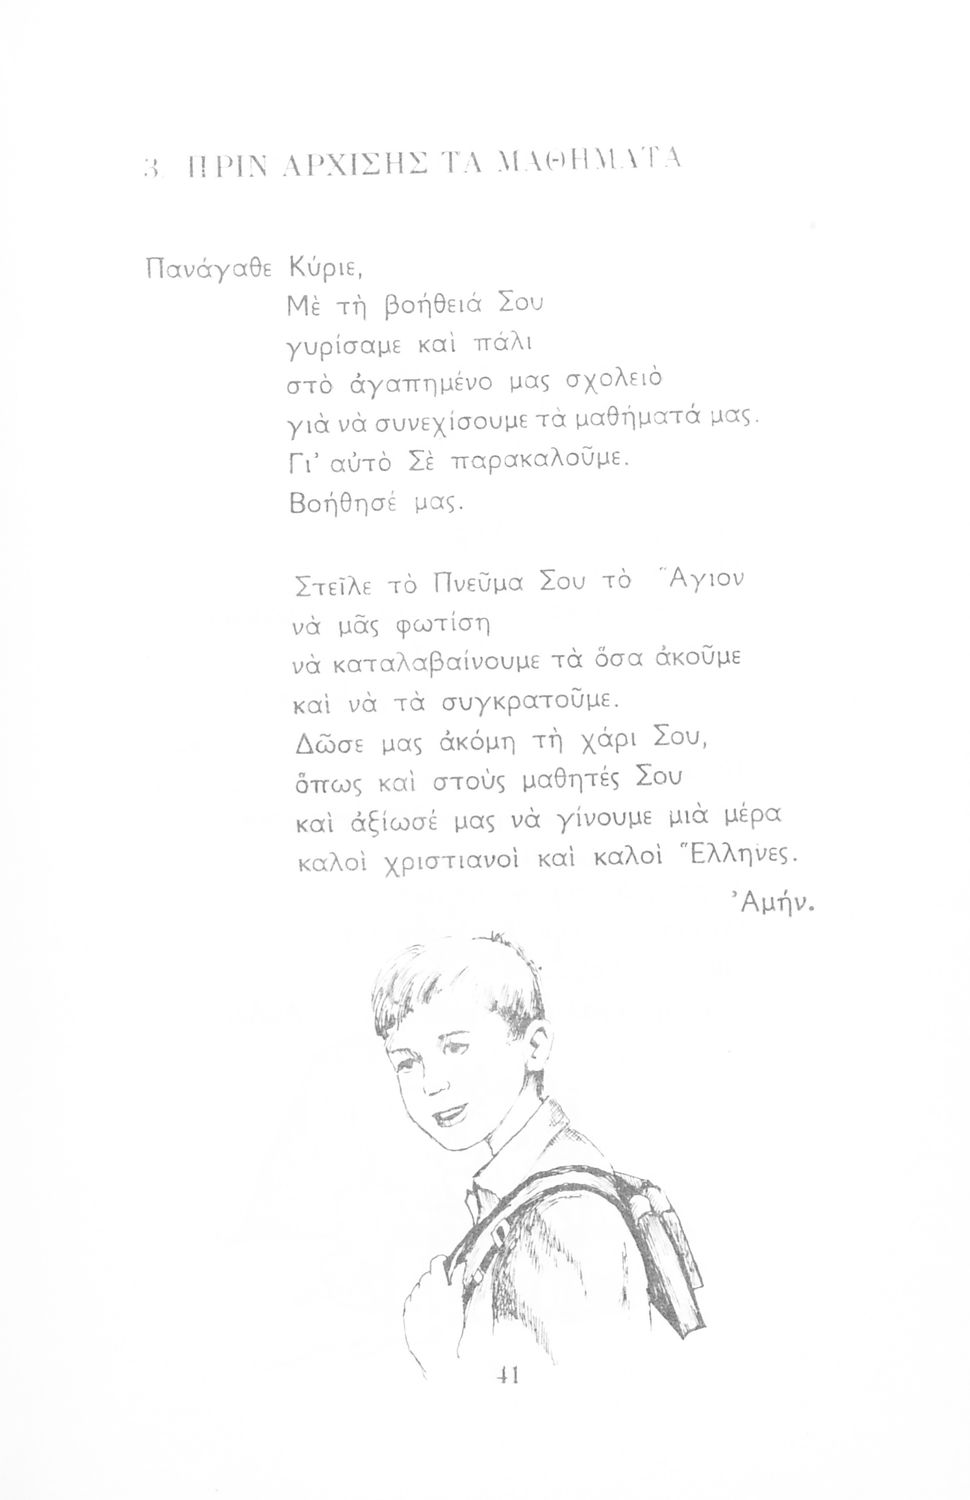 3. ΠΡΙΝ ΑΡΧΙΣΗΣ ΤΑ ΜΑΘΗΜΑΤΑ
Πανάγαθε Κύριε,
Μὲ τὴ βοήθειά Σου
γυρίσαμε καὶ πάλι
στὸ ἀγαπημένο μας σχολειὸ
γιὰ νὰ συνεχίσουμε τὰ μαθήματά μας.
Γι' αὐτὸ Σὲ παρακαλοῦμε.
Βοήθησέ μας.
Στεῖλε τὸ Πνεῦμα Σου τὸ Ἅγιον
νὰ μᾶς φωτίση
νὰ καταλαβαίνουμε τὰ ὅσα ἀκοῦμε
καὶ νὰ τὰ συγκρατοῦμε.
Δῶσε μας ἀκόμη τὴ χάρι Σου,
ὅπως καὶ στοὺς μαθητές Σου
καὶ ἀξίωσέ μας νὰ γίνουμε μιὰ μέρα
καλοὶ χριστιανοὶ καὶ καλοὶ Ἕλληνες.
Ἀμήν.
41